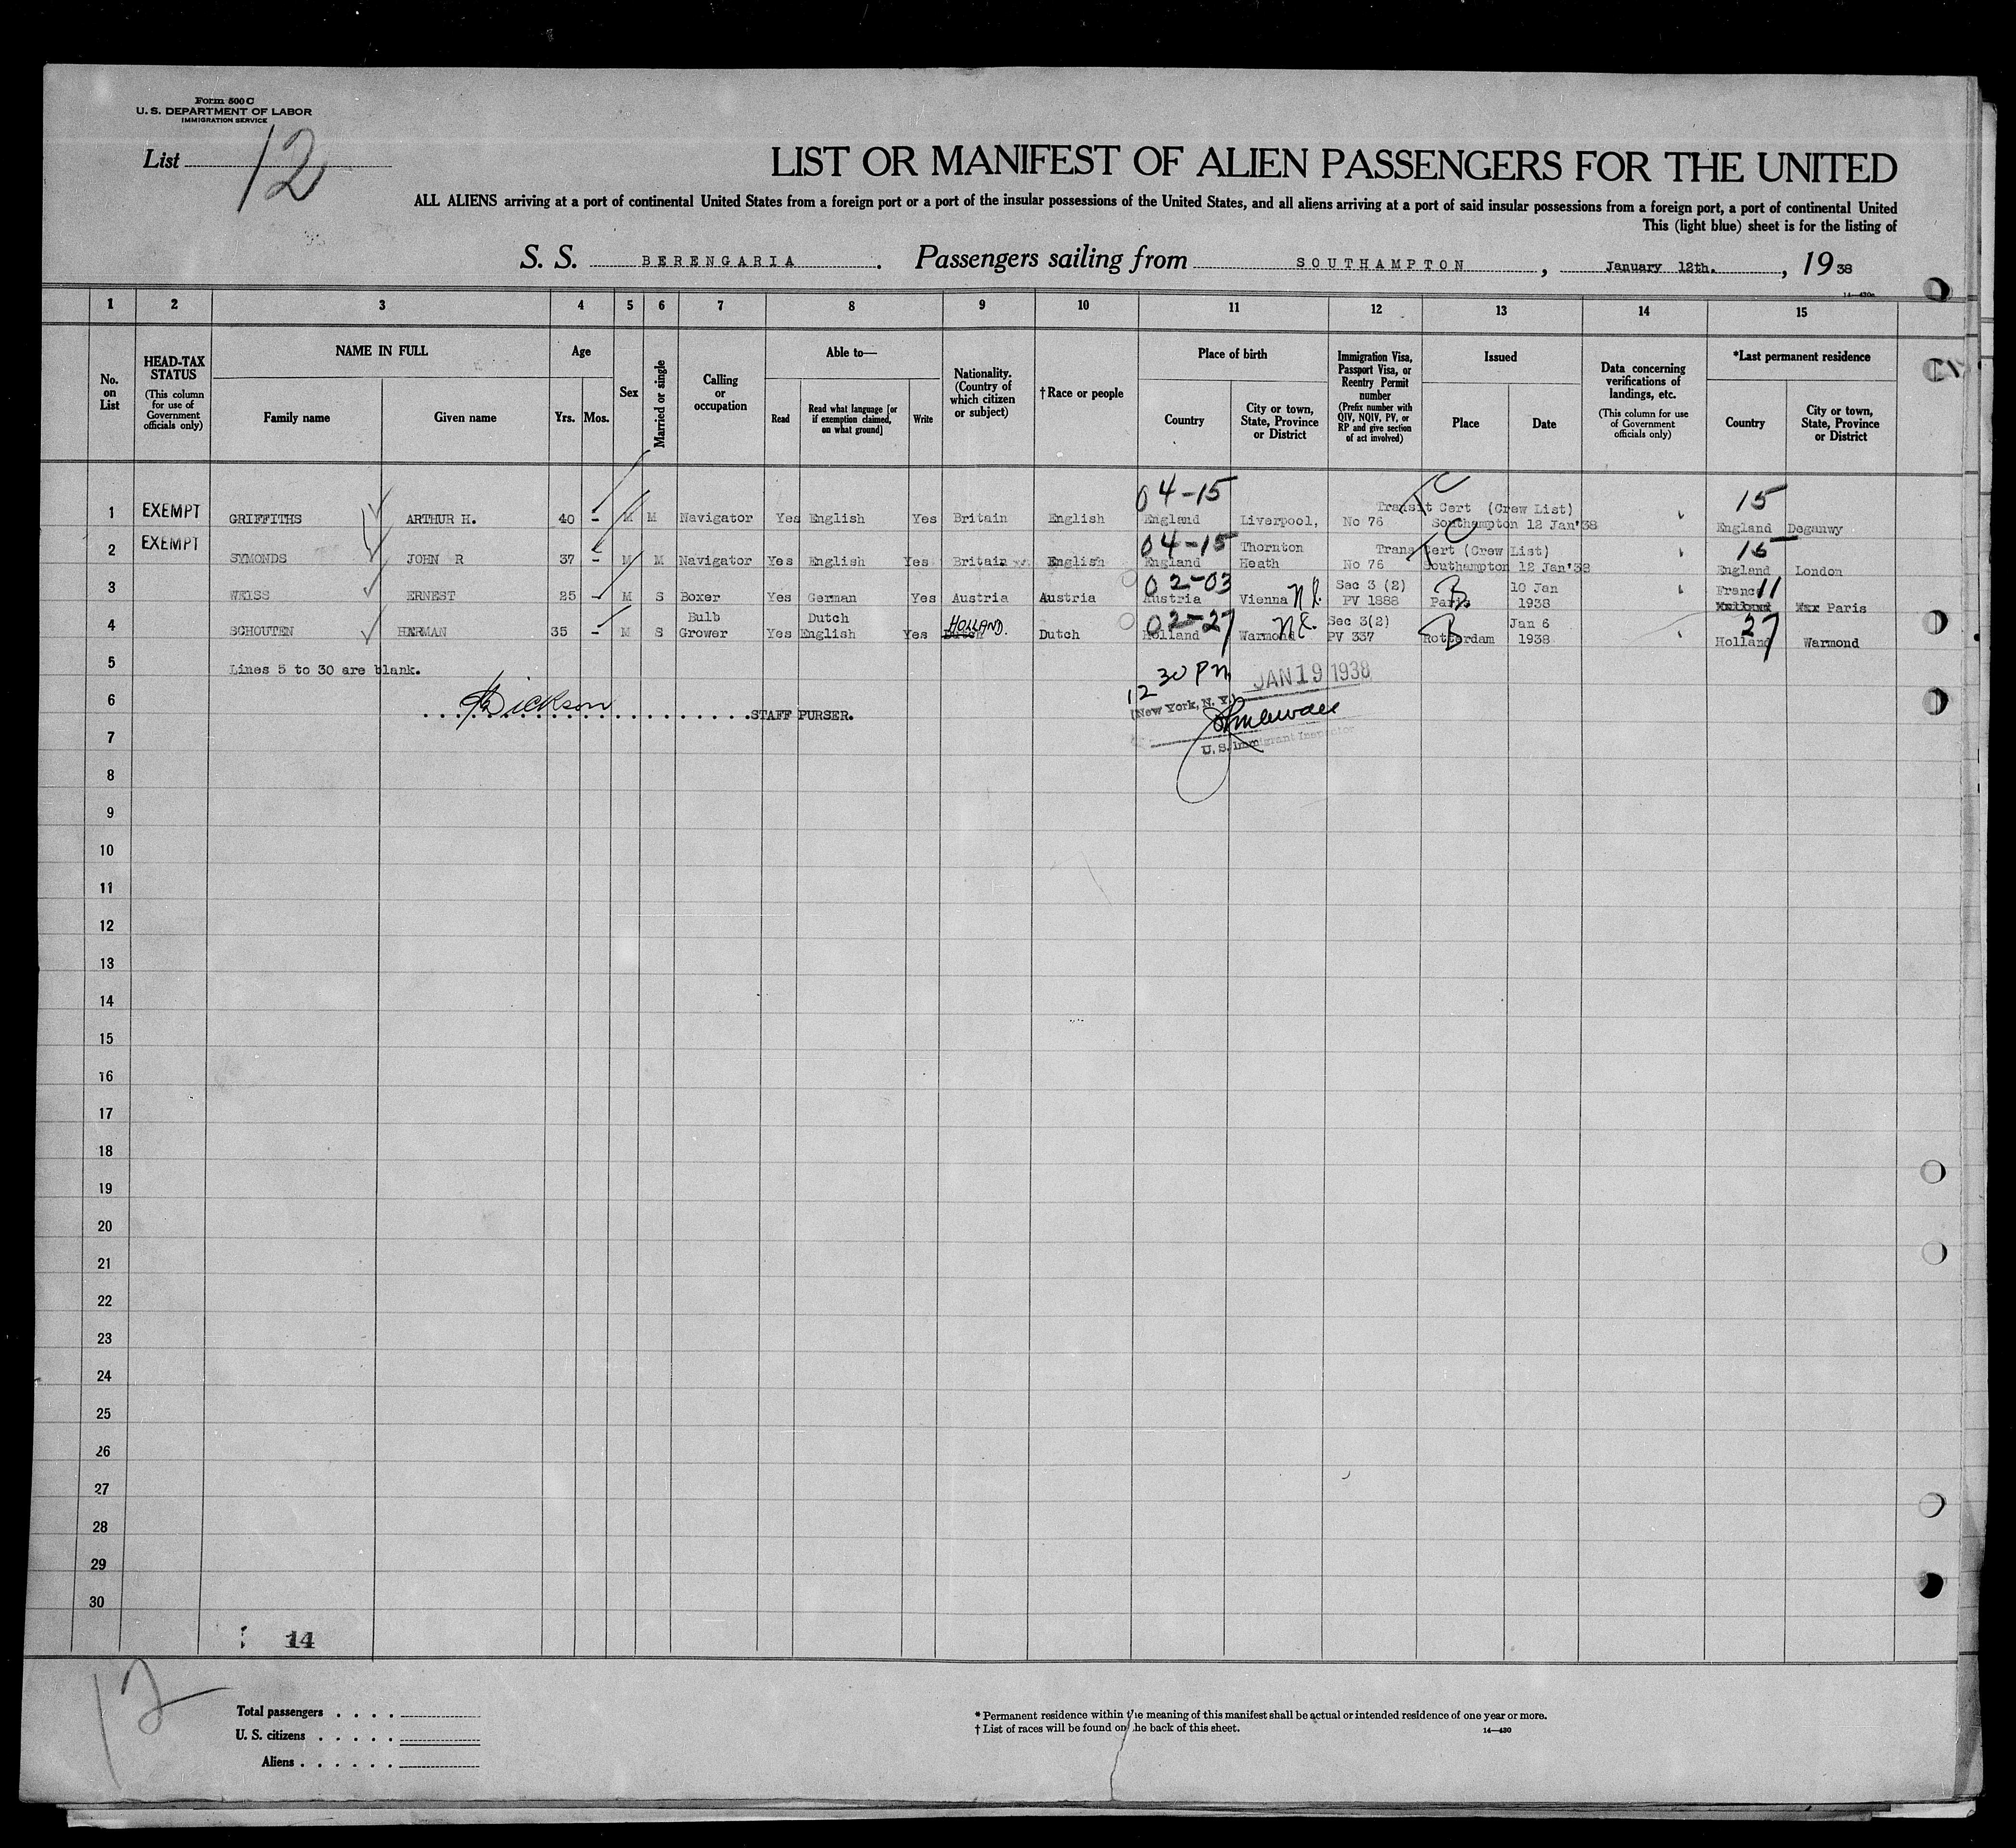 Form 500 C
U. S. DEPARTMENT OF LABOR
IMMIGRATION SERVICE
List 12
LIST OR MANIFEST OF ALIEN PASSENGERS FOR THE UNITED
ALL ALIENS arriving at a port of continental United States from a foreign port or a port of the insular possessions of the United States, and all aliens arriving at a port of said insular possessions from a foreign port, a port of continental United
This (light blue) sheet is for the listing of
S. S. BERENGARIA. Passengers sailing from SOUTHAMPTON, January 12th., 19 38
14—430a
1 2 3 4 5 6 7 8 9 10 11 12 13 14 15
No. on List
HEAD-TAX STATUS (This column for use of Government officials only)
NAME IN FULL
Family name
Given name
Age
Yrs. Mos.
Sex
Married or single
Calling or occupation
Able to—
Read
Read what language [or if exemption claimed, on what ground]
Write
Nationality. (Country of which citizen or subject)
†Race or people
Place of birth
Country
City or town, State, Province or District
Immigration Visa, Passport Visa, or Reentry Permit number (Prefix number with QIV, NQIV, PV, or RP and give section of act involved)
Issued
Place
Date
Data concerning verifications of landings, etc. (This column for use of Government officials only)
*Last permanent residence
Country
City or town, State, Province or District
04-15 TC 15
1 EXEMPT GRIFFITHS ARTHUR H. 40 - M M Navigator Yes English Yes Britain English England Liverpool, No 76 Transit Cert (Crew List) Southampton 12 Jan'38 England Deganwy
04-15 TC 15
2 EXEMPT SYMONDS JOHN R 37 - M M Navigator Yes English Yes Britain English England Thornton Heath No 76 Trans Cert (Crew List) Southampton 12 Jan'38 England London
02-03 11
3 WEISS ERNEST 25 - M S Boxer Yes German Yes Austria Austria Austria Vienna Sec 3 (2) PV 1888 Paris B 10 Jan 1938 Franc Paris
02-27 27
4 SCHOUTEN HERMAN 35 - M S Bulb Grower Yes Dutch English Yes HOLLAND. Dutch Dutch Holland Warmond Sec 3(2) PV 337 Rotterdam B Jan 6 1938 Holland Warmond
5 Lines 5 to 30 are blank.
12 30 PM JAN 19 1938
6 Dickson STAFF PURSER.
(New York, N. Y.)
U. S. Immigrant Inspector
7
8
9
10
11
12
13
14
15
16
17
18
19
20
21
22
23
24
25
26
27
28
29
30
14
12
Total passengers . . . .
U. S. citizens . . . . .
Aliens . . . . . .
* Permanent residence within the meaning of this manifest shall be actual or intended residence of one year or more.
† List of races will be found on the back of this sheet.
14—430